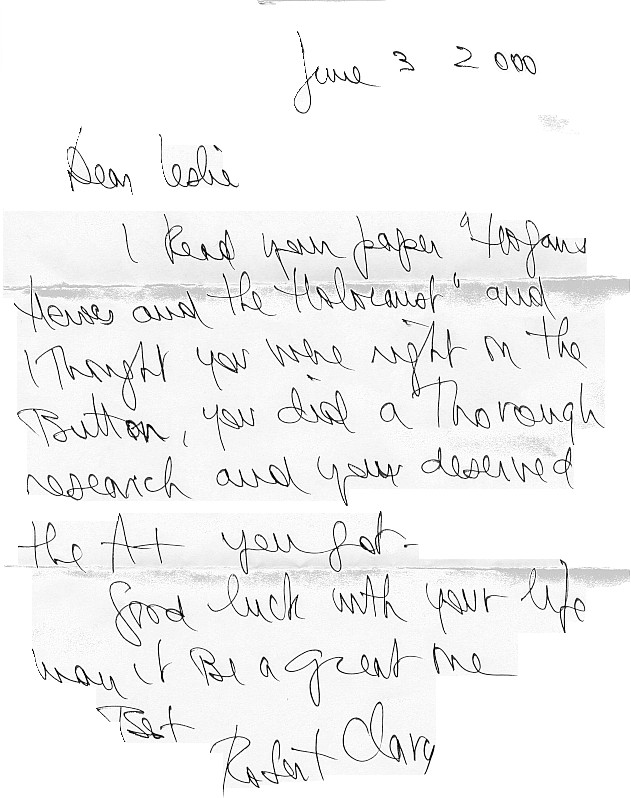 June 3 2000
Dear Leslie
I Read your paper "Hogans
Heroes and the Holocaust" and
I Thought you were right on the
Button, you did a Thorough
research and you deserved
the A+ you got.
Good luck with your life
may it Be a great one
Best
Robert Clary